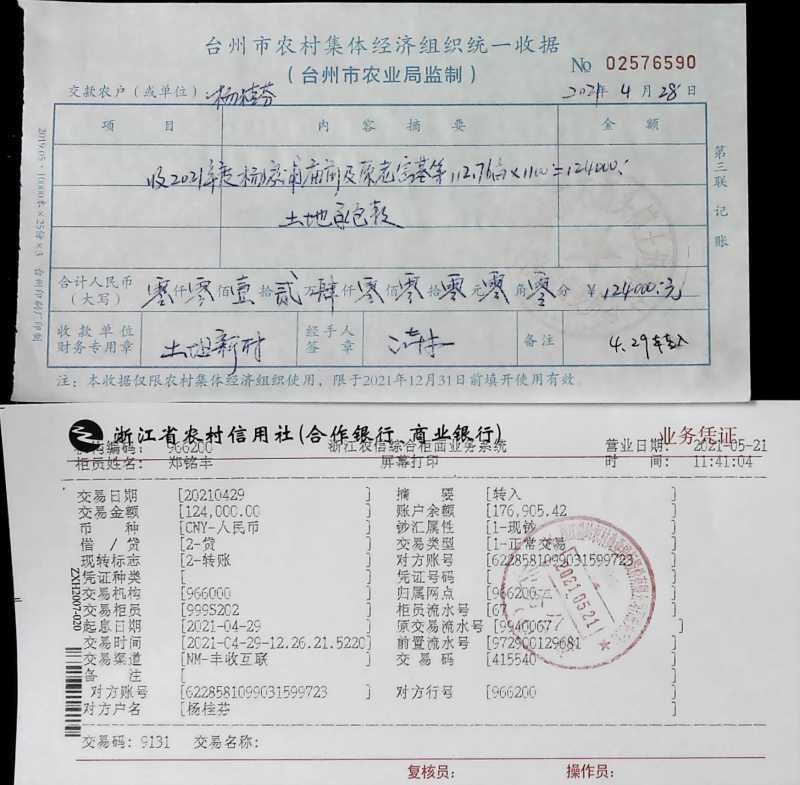 台州市农村集体经济组织统一收据
(台州市农业局监制)
No 02576590
交款农户(或单位) 杨桂芬 2021年4月28日
项目 内容摘要 金额
收2021年度杨 及原老 基等112.76亩×1100=124000.
土地承包款
合计人民币(大写) 零仟零佰壹拾贰万肆仟零佰零拾零元零角零分 ¥124000.元
收款单位财务专用章 经手人签章 备注 4.29转入
注:本收据仅限农村集体经济组织使用,限于2021年12月31日前填开使用有效。
第三联 记账
2019.05·10000本×25份×3 台州印刷厂印制
浙江省农村信用社(合作银行、商业银行) 业务凭证
机构编码: 966200 浙江农信综合柜面业务系统 营业日期: 2021-05-21
柜员姓名: 郑铭丰 屏幕打印 时 间: 11:41:04
交易日期 [20210429 ] 摘 要 [转入 ]
交易金额 [124,000.00 ] 账户余额 [176,905.42 ]
币 种 [CNY-人民币 ] 钞汇属性 [1-现钞 ]
借 / 贷 [2-贷 ] 交易类型 [1-正常交易 ]
现转标志 [2-转账 ] 对方账号 [6228581099031599723 ]
凭证种类 [ ] 凭证号码 [ ]
交易机构 [966000 ] 归属网点 [966200 ]
交易柜员 [999S202 ] 柜员流水号 [67 ]
起息日期 [2021-04-29 ] 原交易流水号 [99400677 ]
交易时间 [2021-04-29-12.26.21.5220] 前置流水号 [972900129681 ]
交易渠道 [NM-丰收互联 ] 交 易 码 [415540 ]
备 注 [ ]
对方账号 [6228581099031599723 ] 对方行号 [966200 ]
对方户名 [杨桂芬 ]
交易码: 9131 交易名称:
复核员: 操作员:
ZXH2007-020
2021.05.21